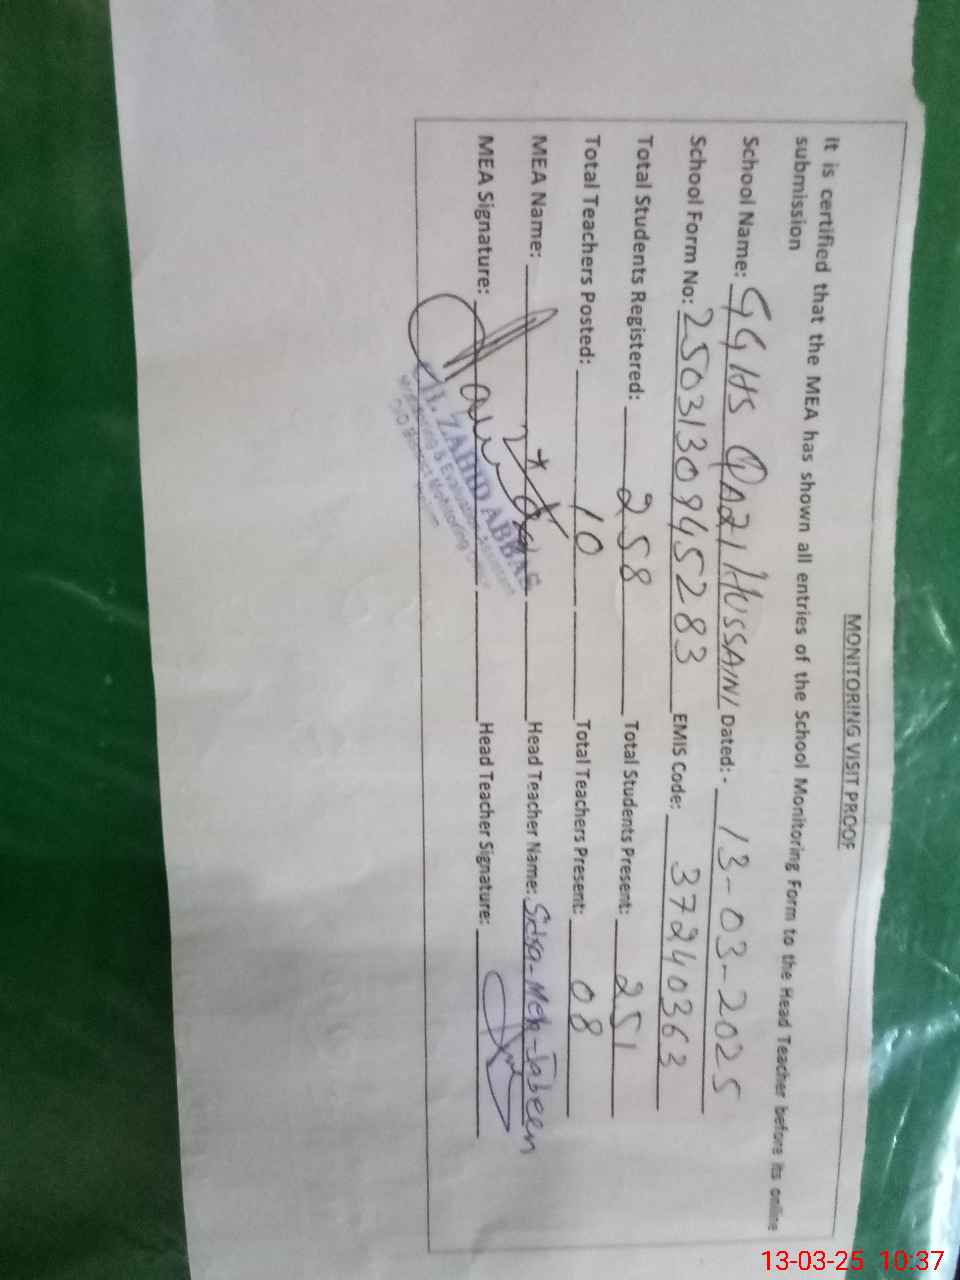 MONITORING VISIT PROOF
It is certified that the MEA has shown all entries of the School Monitoring Form to the Head Teacher before its online
submission
School Name: GGHS QAZI HUSSAINI Dated:- 13-03-2025
School Form No: 2503130945283 EMIS Code: 37240363
Total Students Registered: 258 Total Students Present: 251
Total Teachers Posted: 10 Total Teachers Present: 08
MEA Name: Head Teacher Name: Sidra-Meh-Jabeen
MEA Signature: Head Teacher Signature:
ZAHID ABBAS
Monitoring & Evaluation Assistant
Monitoring
13-03-25 10:37